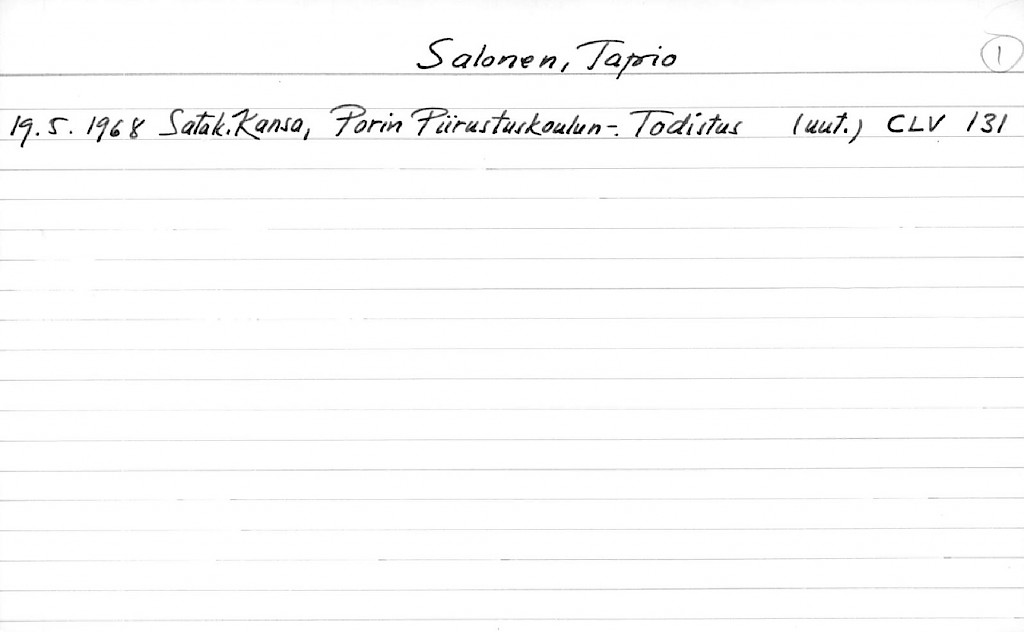 Salonen, Tapio 1
19.5. 1968 Satak. Kansa, Porin Piirustuskoulun-. Todistus (uut.) CLV 131